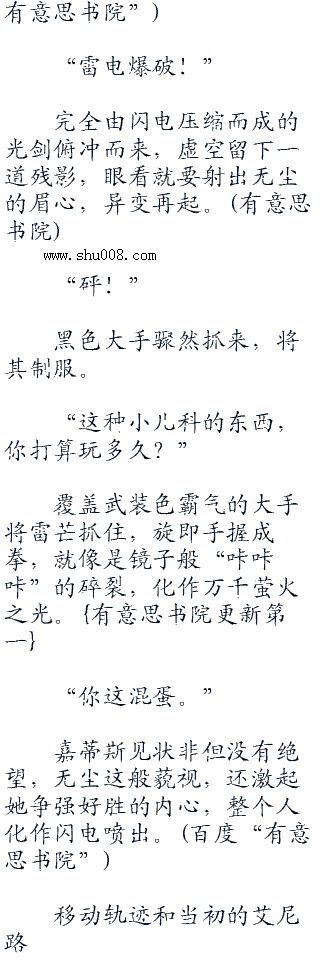 有意思书院”)
“雷电爆破！”
完全由闪电压缩而成的
光剑俯冲而来，虚空留下一
道残影，眼看就要射出无尘
的眉心，异变再起。(有意思
书院)
www.shu008.com
“砰！”
黑色大手骤然抓来，将
其制服。
“这种小儿科的东西，
你打算玩多久？”
覆盖武装色霸气的大手
将雷芒抓住，旋即手握成
拳，就像是镜子般“咔咔
咔”的碎裂，化作万千萤火
之光。{有意思书院更新第
一}
“你这混蛋。”
嘉蒂斯见状非但没有绝
望，无尘这般藐视，还激起
她争强好胜的内心，整个人
化作闪电喷出。(百度“有意
思书院”)
移动轨迹和当初的艾尼
路